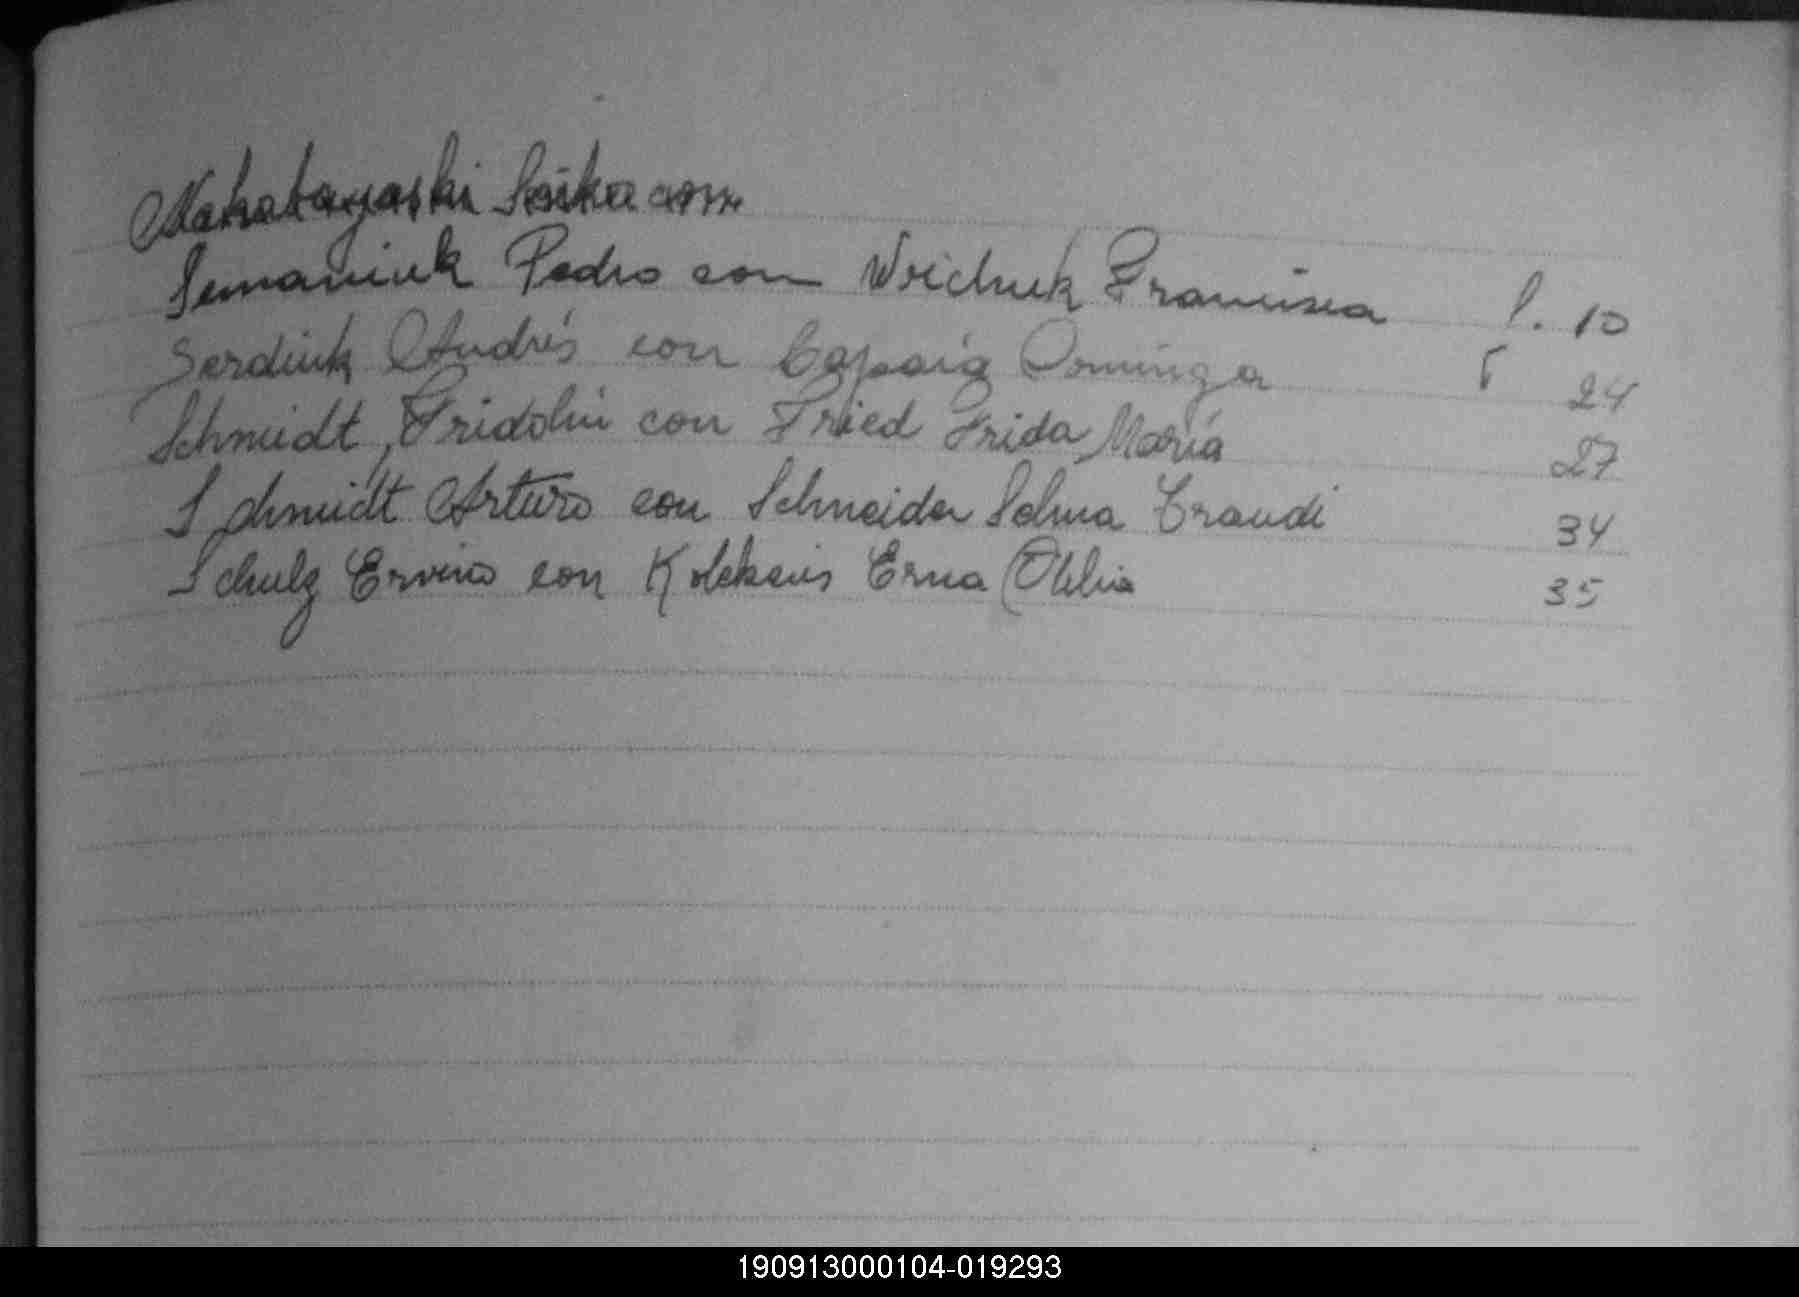 Nakabayashi con
Semaniuk Pedro con Francisca f. 10
Serdiuk Andrés con Dominga 24
Schmidt, Fridolin con Fried Frida María 27
Schmidt Arturo con Schneider Selma Traudi 34
Schulz Ervino con Erna Otilia 35
190913000104-019293